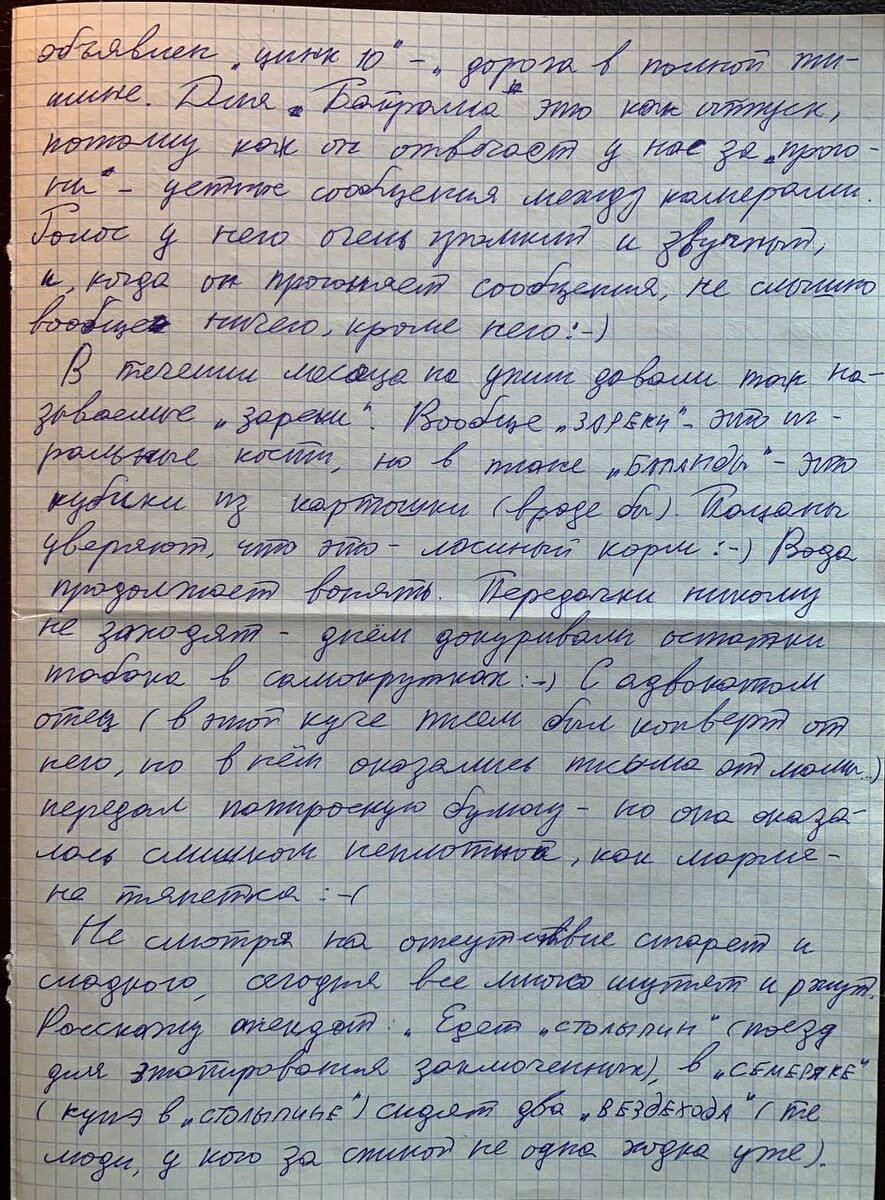 объявлен „цинк 10" - „дорога в полной ти-
шине. Для „Байрама" это как отпуск,
потому как он отвечает у нас за „прого-
ны" - устные сообщения между камерами.
Голос у него очень громкий и звучный,
и, когда он прогоняет сообщения, не слышно
вообще ничего, кроме него :-)
В течении месяца на ужин давали так на-
зываемые „зареки". Вообще „ЗАРЕКИ" - это иг-
ральные кости, но в плане „БАЛАНДЫ" - это
кубики из картошки (вроде бы). Пацаны
уверяют, что это - лосиный корм :-) Вода
продолжает вонять. Передачки никому
не заходят - днём докуривали остатки
табака в самокрутках :-) С адвокатом
отец (в этой куче писем был конверт от
него, но в нём оказались письма от мамы..)
передал папиросную бумагу - но она оказа-
лась слишком неплотной, как марле-
на тряпетка :-(
Не смотря на отсутствие сигарет и
сладкого, сегодня все много шутят и ржут.
Расскажу анекдот: „Едет „СТОЛЫПИН" (поезд
для этапирования заключенных), в „СЕМЕРЯКЕ"
(купэ в „СТОЛЫПИНЕ") сидят два „ВЕЗДЕХОДА" (те
люди, у кого за спиной не одна ходка уже).